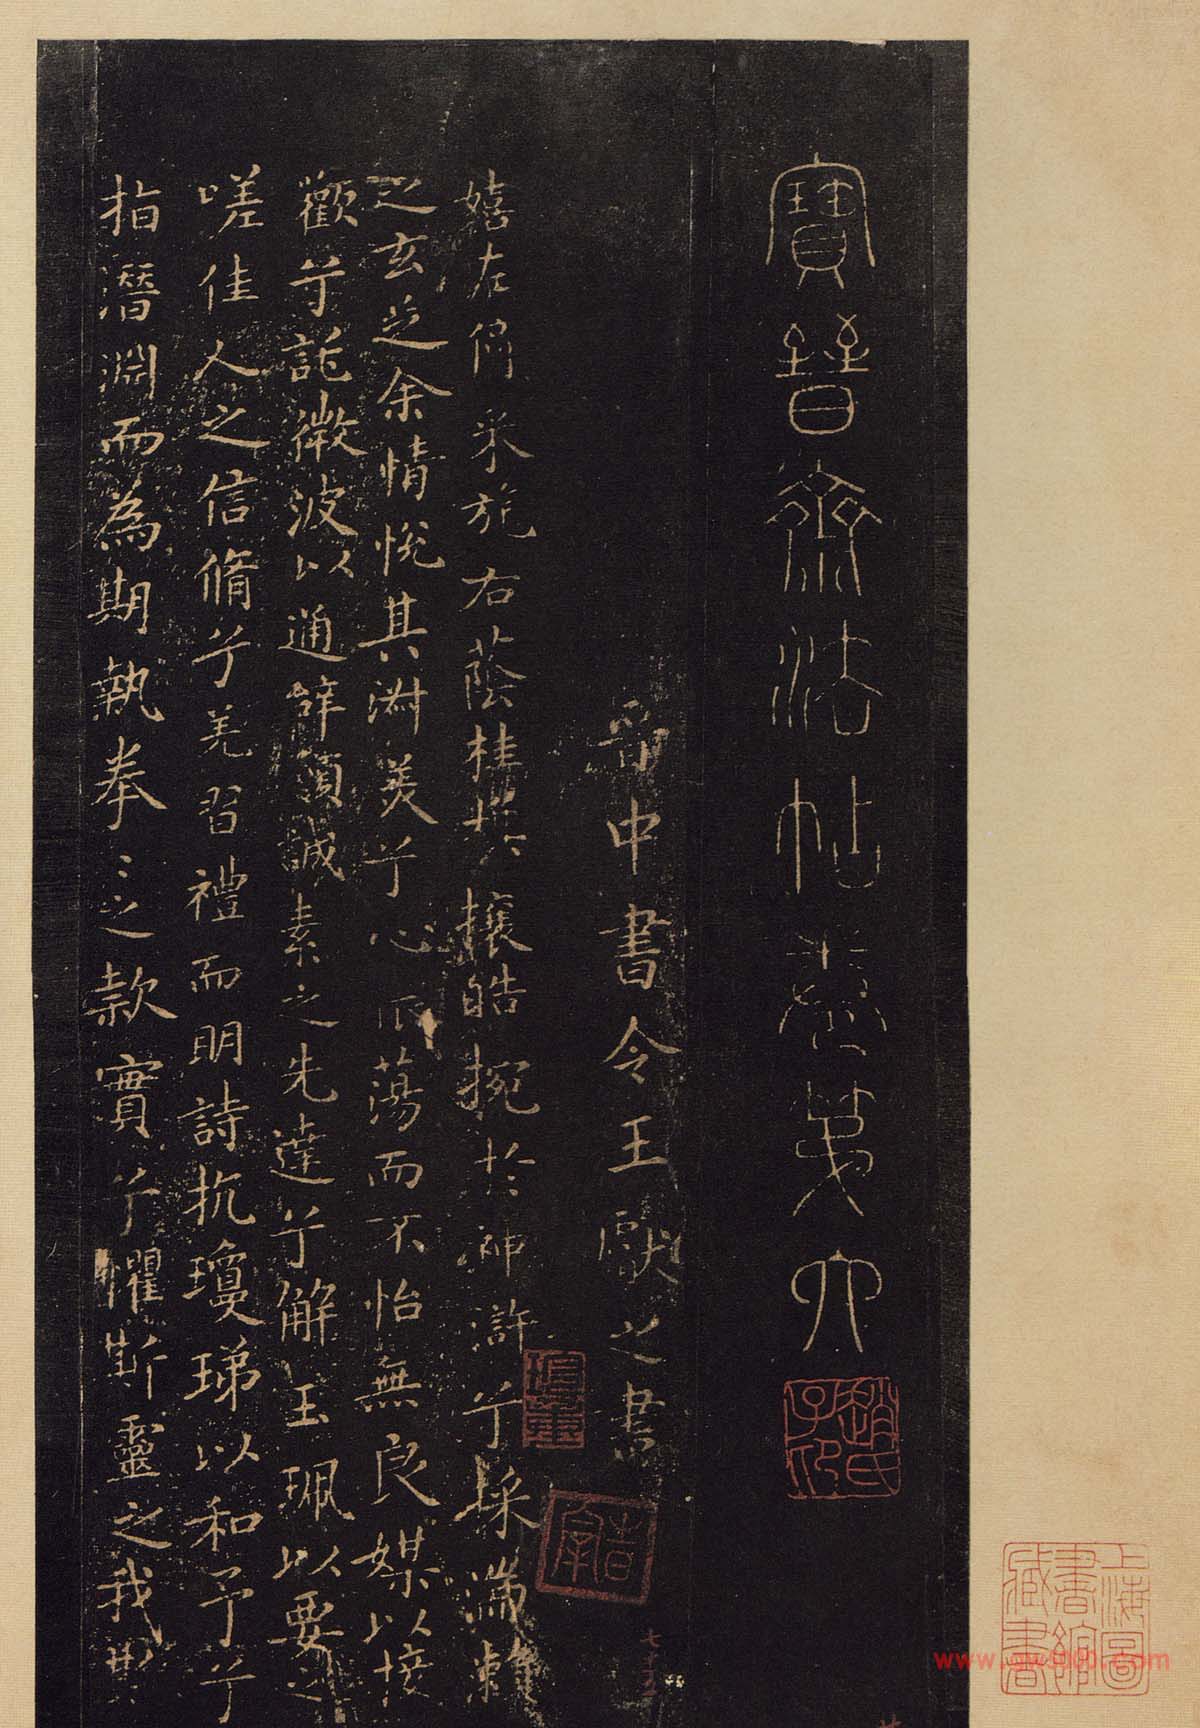 寶晉齋法帖卷第六
晉中書令王獻之書
嬉左倚采旄右蔭桂旗攘皓捥於神滸兮採湍瀨
之玄芝余情悅其淑美兮心振蕩而不怡無良媒以接
歡兮託微波以通辭願誠素之先達兮解玉珮以要之
嗟佳人之信脩兮羌習禮而明詩抗瓊珶以和予兮
指潛淵而為期執拳〻之款實兮懼斯靈之我欺
趙氏子印
上海圖書館藏書